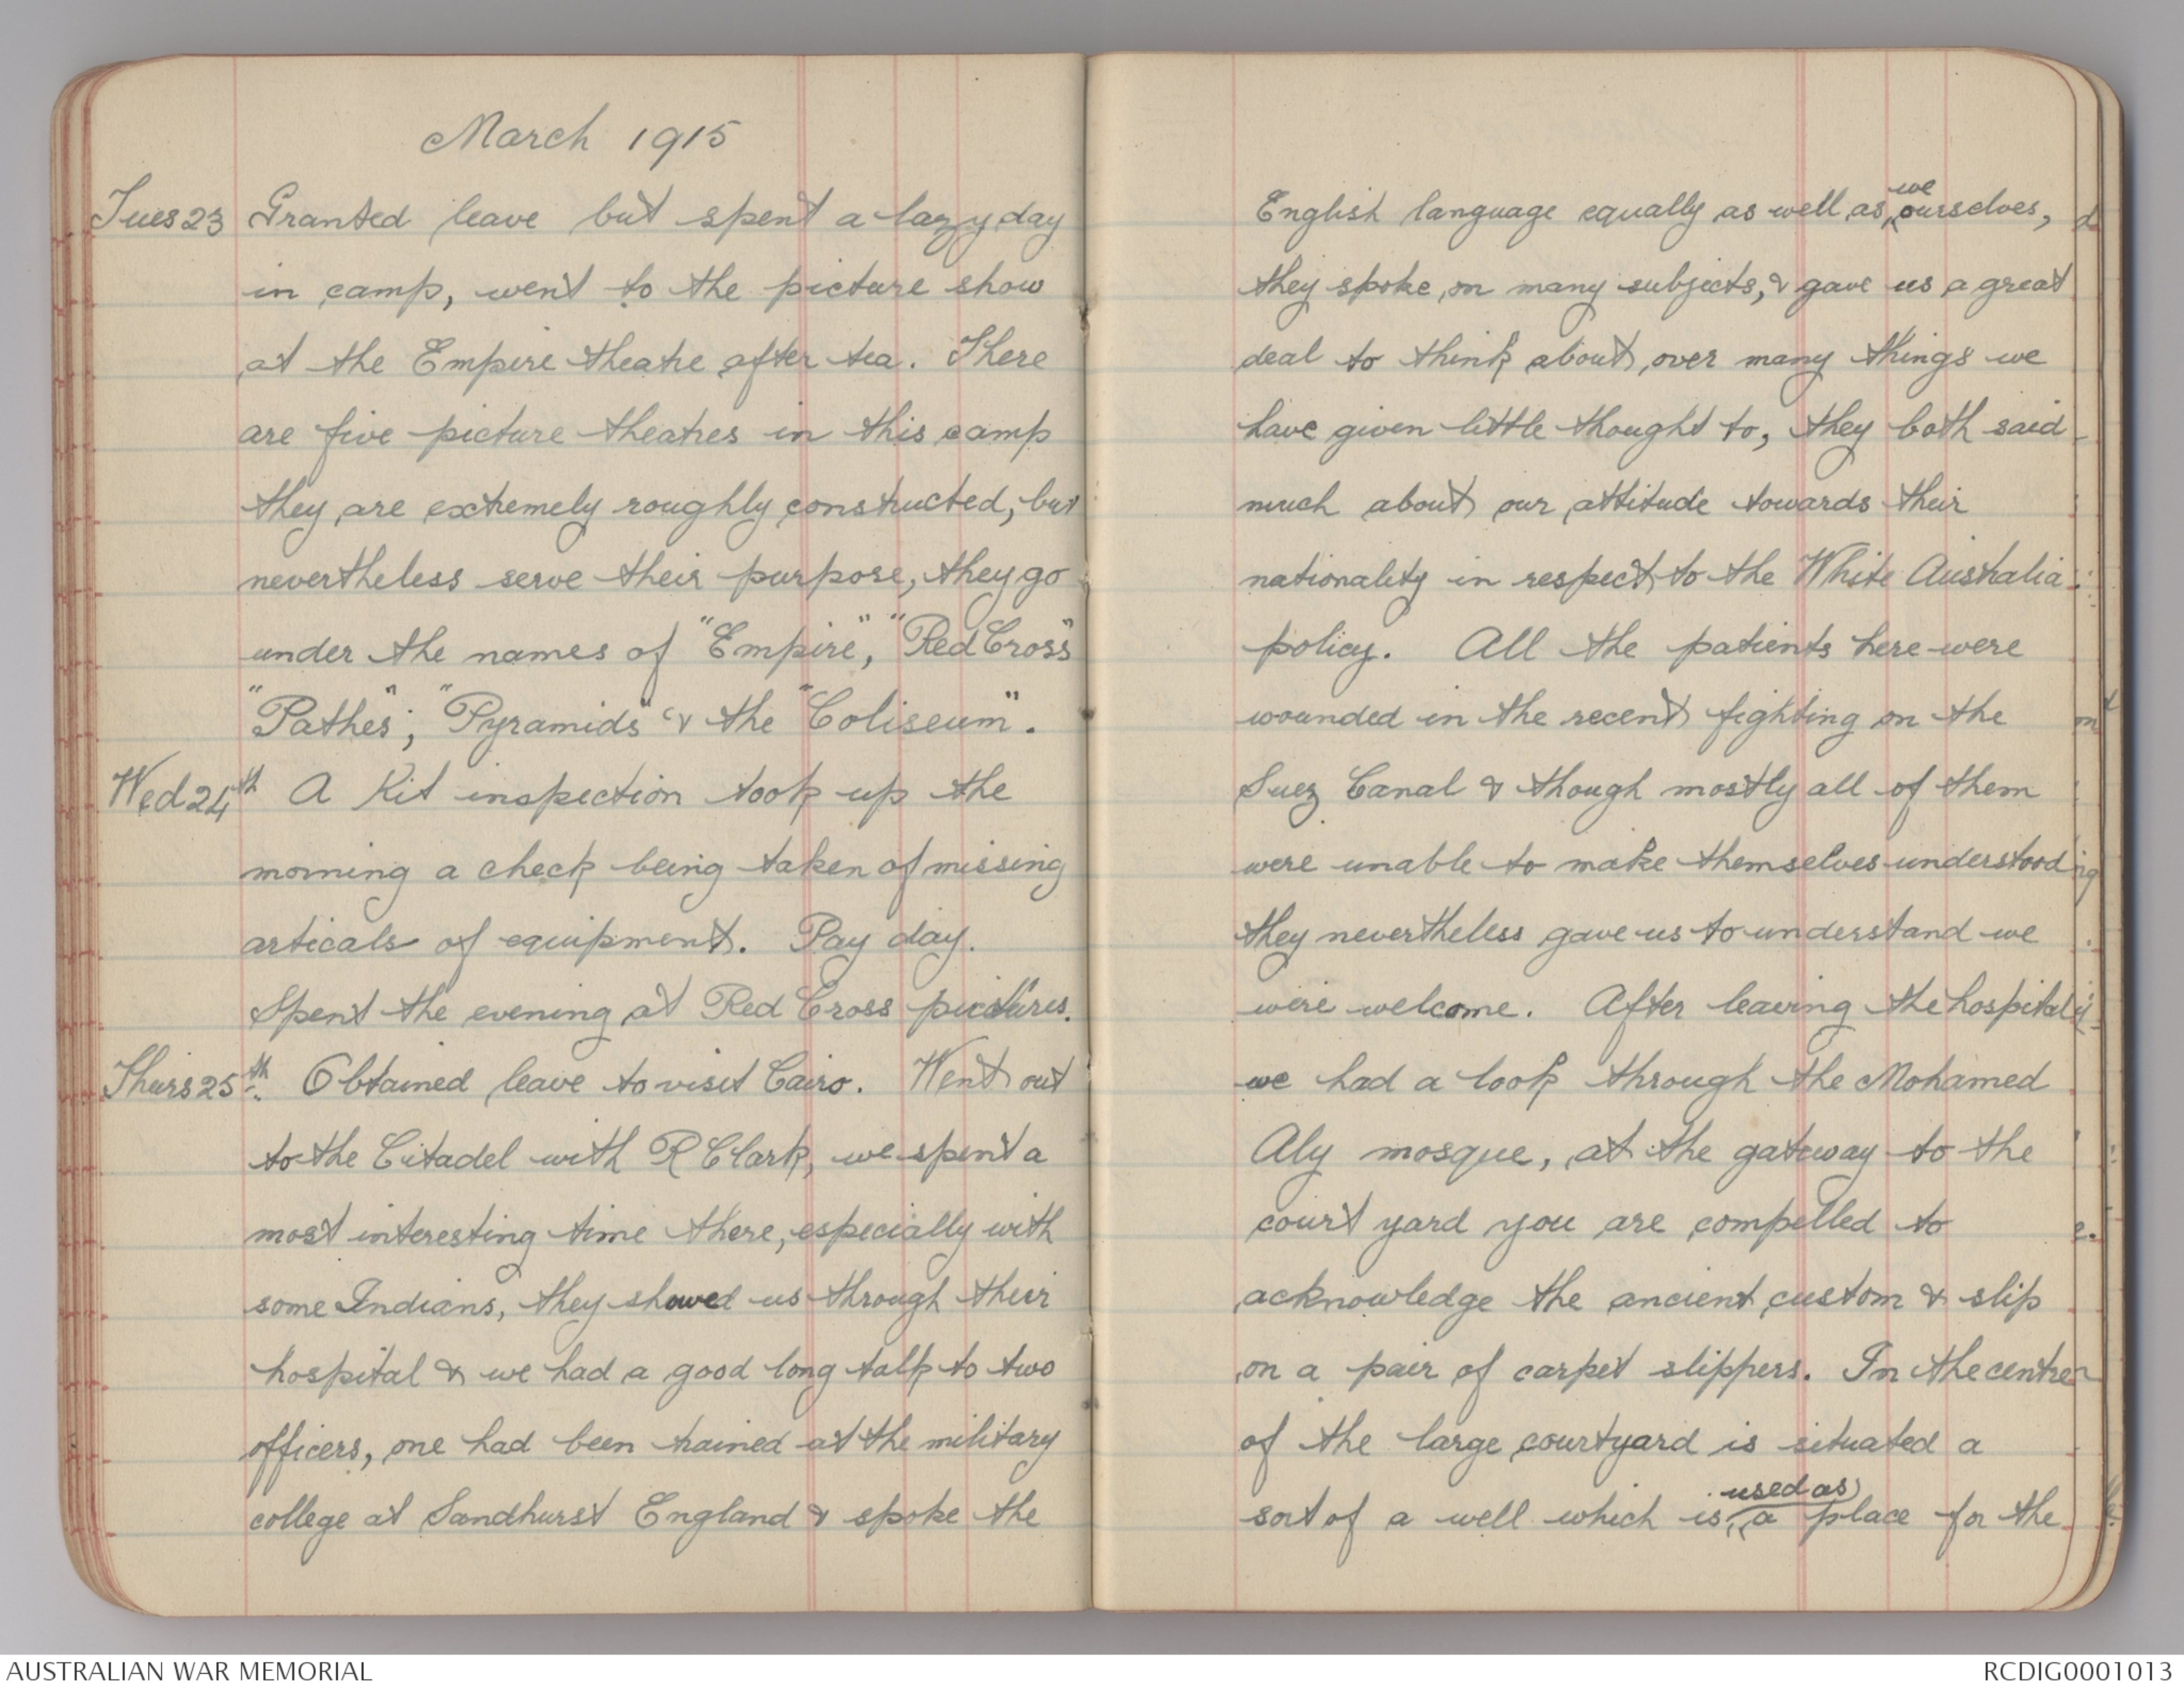 March 1915
Tues 23 Granted leave but spent a lazy day
in camp, went to the picture show
at the Empire theatre after tea. There
are five picture theatres in this camp
they are extremely roughly constructed, but
nevertheless serve their purpose, they go
under the names of "Empire", "Red Cross"
"Pathes", "Pyramids" & the "Coliseum".
Wed 24th A Kit inspection took up the
morning a check being taken of missing
articals of equipment. Pay day.
Spent the evening at Red Cross pictures.
Thurs 25th. Obtained leave to visit Cairo. Went out
to the Citadel with R Clark, we spent a
most interesting time there, especially with
some Indians, they showed us through their
hospital & we had a good long talk to two
officers, one had been trained at the military
college at Sandhurst England & spoke the
English language equally as well as we ourselves,
they spoke on many subjects, & gave us a great
deal to think about over many things we
have given little thought to, they both said
much about our attitude towards their
nationality in respect to the White Australia
policy. All the patients here were
wounded in the recent fighting on the
Suez Canal & though mostly all of them
were unable to make themselves understood
they nevertheless gave us to understand we
were welcome. After leaving the hospital
we had a look through the Mohamed
Aly mosque, at the gateway to the
court yard you are compelled to
acknowledge the ancient custom & slip
on a pair of carpet slippers. In the centre
of the large courtyard is situated a
sort of a well which is used as a place for the
AUSTRALIAN WAR MEMORIAL
RCDIG0001013